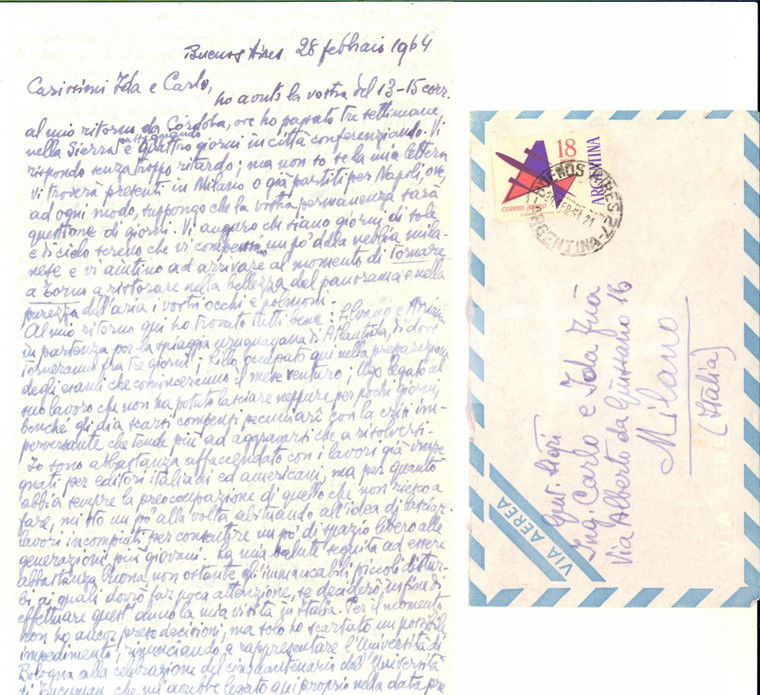 Buenos Aires 28 febbraio 1964
Carissimi Ida e Carlo,
ho avuto la vostra del 13-15 corr.
al mio ritorno da Córdoba, ove ho passato tre settimane
nella Sierra e quattro giorni in città conferenziando. Vi
rispondo senza troppo ritardo; ma non so se la mia lettera
vi troverà presenti in Milano o già partiti per Napoli, ove,
ad ogni modo, suppongo che la vostra permanenza sarà
questione di giorni. Vi auguro che siano giorni di sole
e di cielo sereno che vi compensino un po' della nebbia mila-
nese e vi aiutino ad arrivare al momento di tornare
a Torno a ristorare nella bellezza del panorama e nella
purezza dell'aria i vostri occhi e polmoni.
Al mio ritorno qui ho trovato tutti bene: Silvano e
in partenza per la spiaggia uruguayana di Atlantida, di dove
torneranno fra tre giorni; occupata qui nella preparazione
degli esami che cominceranno il mese venturo; Ugo legato al
suo lavoro che non ha potuto lasciare neppure per pochi giorni,
benché gli dia scarsi compensi pecuniarî con la crisi im-
perversante che tende più ad aggravarsi che a risolversi.
Io sono abbastanza affaccendato con i lavori già impe-
gnati per editori italiani ed americani, ma per quanto
abbia sempre la preoccupazione di quello che non riesco a
fare, mi sto un po' alla volta abituando all'idea di lasciar
lavori incompiuti per consentire un po' di spazio libero alle
generazioni più giovani. La mia salute seguita ad essere
abbastanza buona, non ostante gli immancabili piccoli distur-
bi ai quali dovrò far poca attenzione, se deciderò infine di
effettuare quest'anno la mia visita in Italia. Per il momento
non ho ancor preso decisioni, ma solo ho scartato un possibile
impedimento, rinunciando a rappresentare l'Università di
Bologna alla celebrazione del cinquantenario dell'Università
di Tucuman, che m'avrebbe legato qui proprio nella data pre
18
ARGENTINA
CORREO AEREO
BUENOS AIRES 27
ARGENTINA
Gent. Sigri
Ing. Carlo e Ida Fuà
Via Alberto da Giussano 16
Milano
(Italia)
VIA AEREA